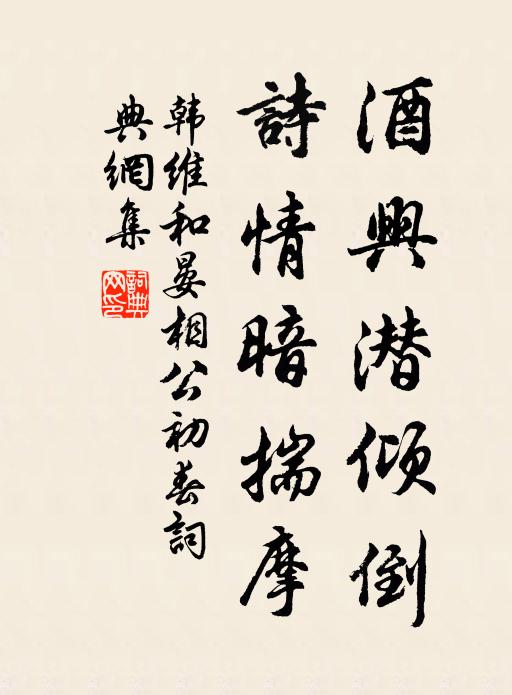 酒興潜傾倒
詩情暗揣摩
韩維和晏相公初春詞
典網集
詞典
网印